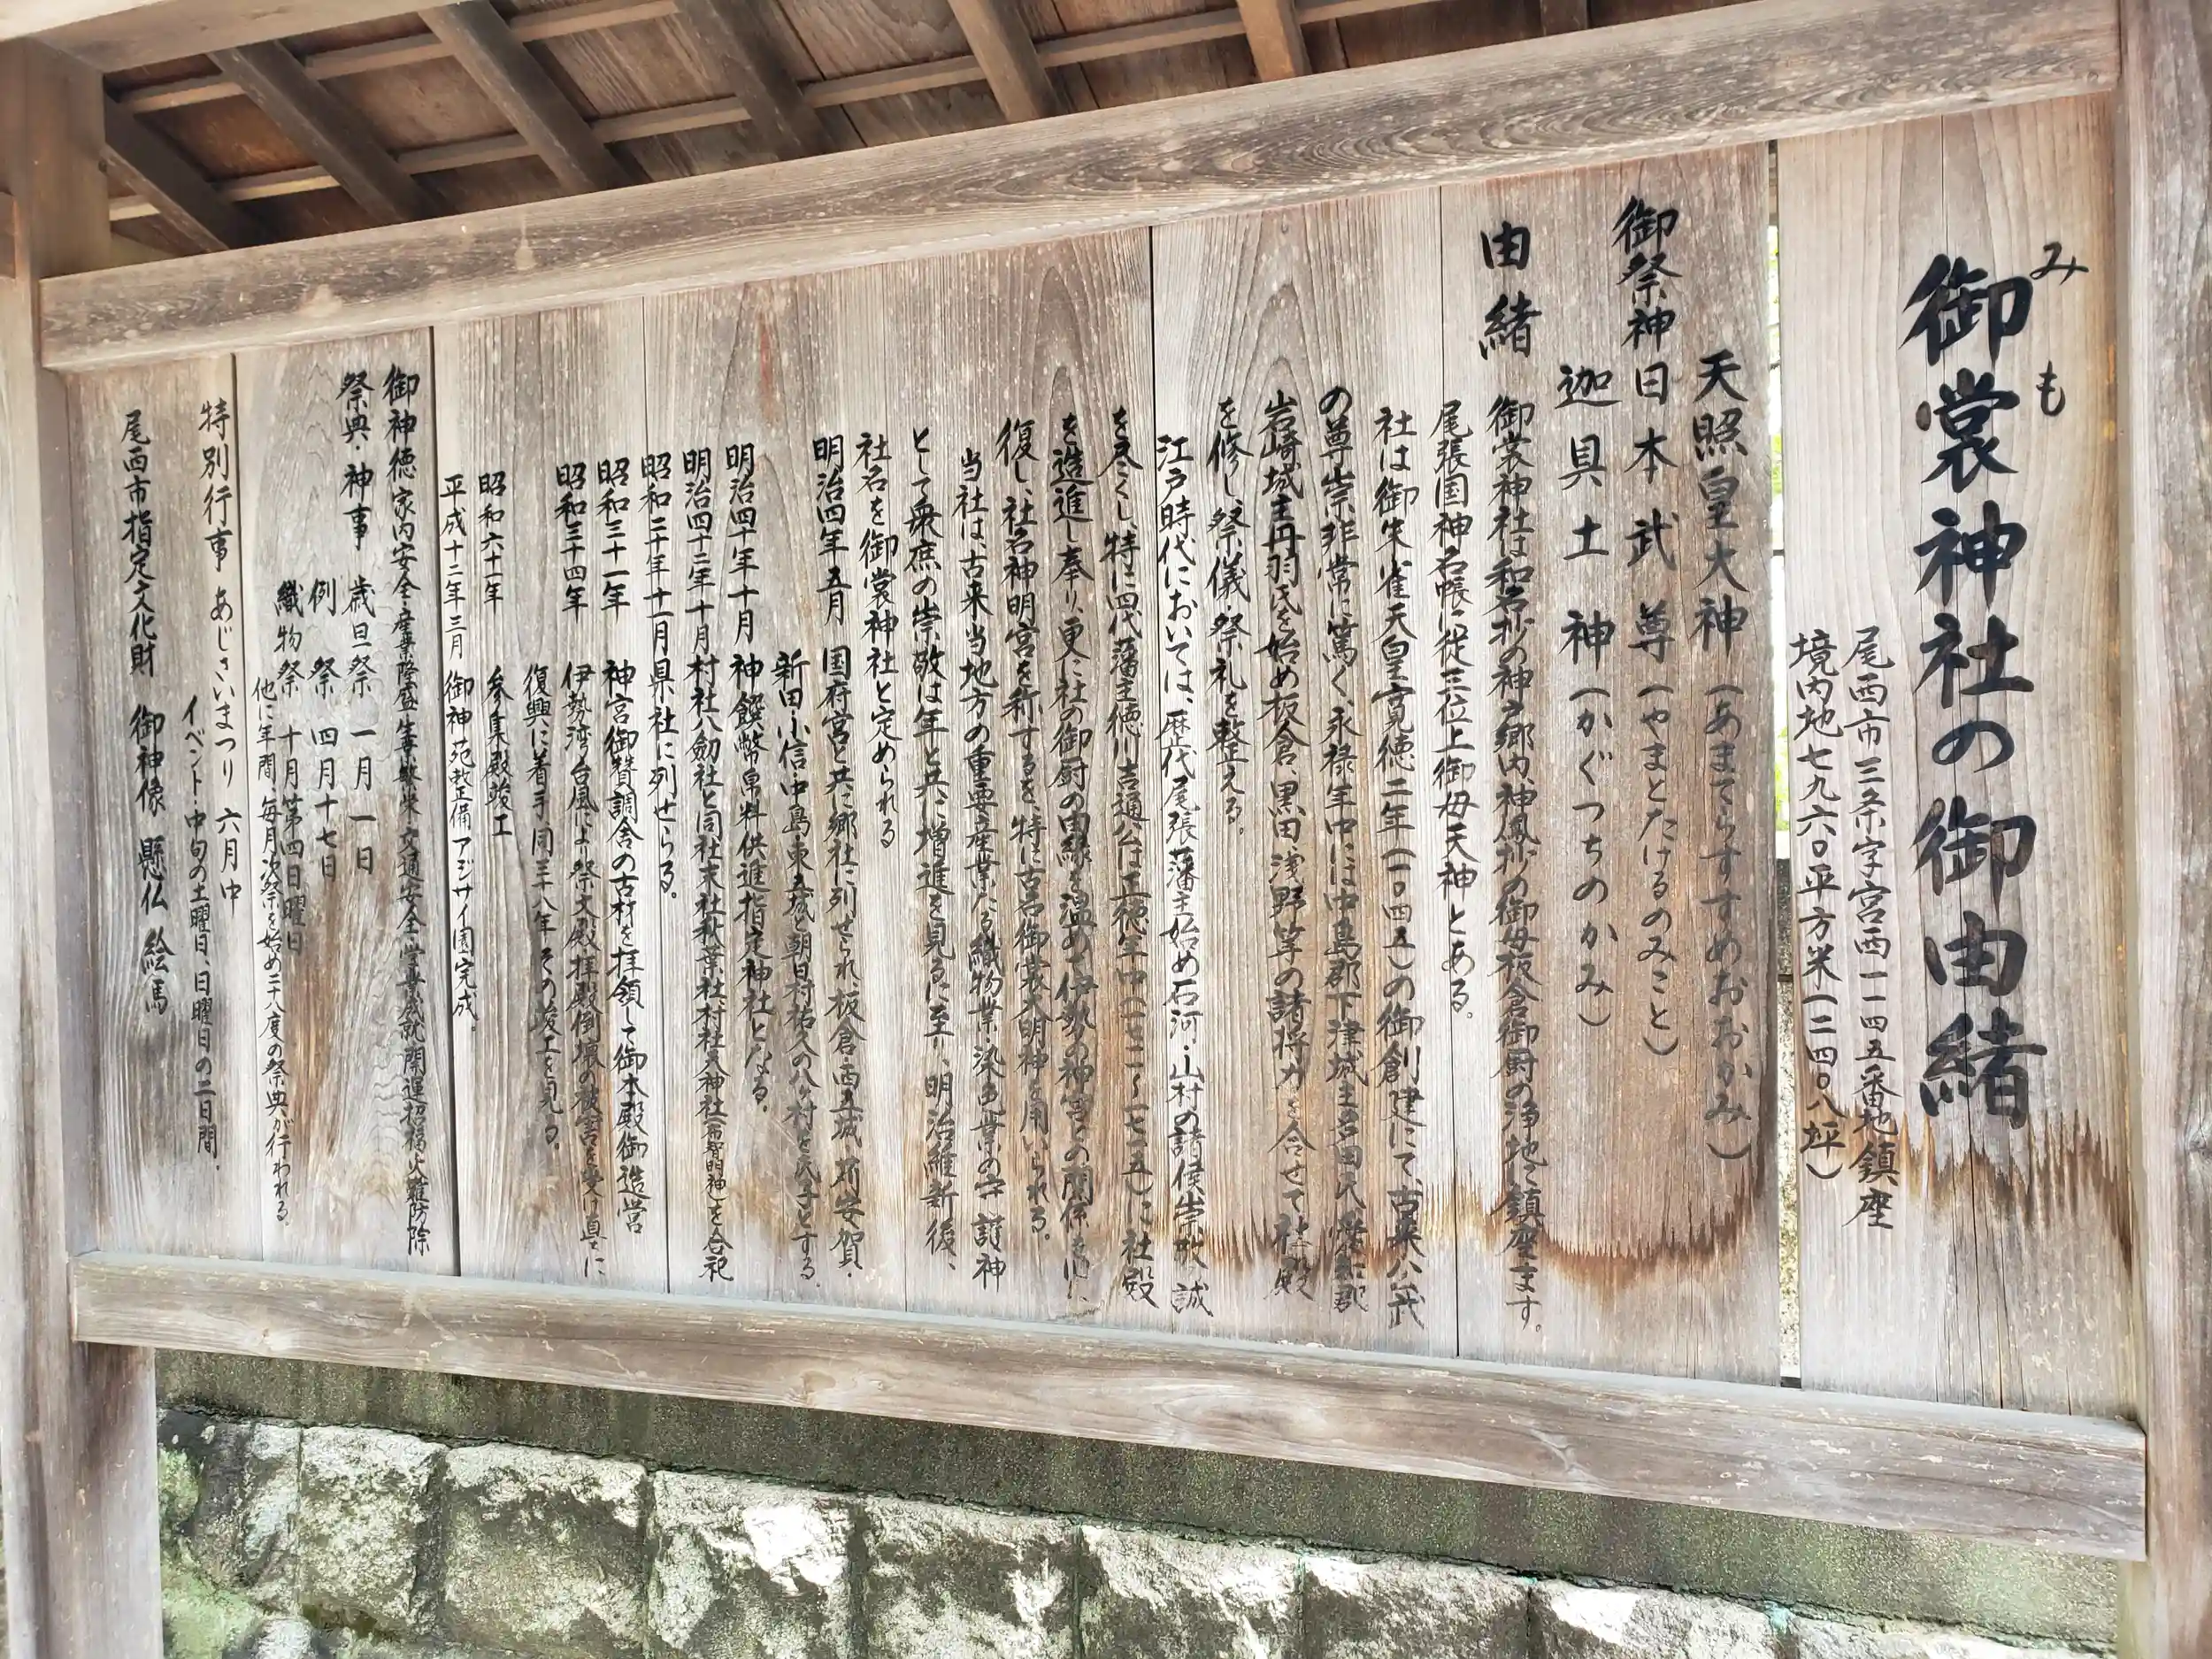 御裳神社の御由緒
みも
尾西市三条字宮西一一四五番地鎮座
境内地七九六〇平方米(二四〇八坪)
天照皇大神(あまてらすすめおおかみ)
御祭神 日本武尊(やまとたけるのみこと)
迦具土神(かぐつちのかみ)
由緒 御裳神社は和名抄の神戸郷内、神鳳抄の御母板倉御厨の浄地に鎮座ます。
尾張国神名帳に従三位上御母天神とある。
社は御朱雀天皇寛徳二年(一〇四五)の御創建にて、古来公武
の尊崇非常に篤く、永禄年中には中島郡下津城主
岩崎城主丹羽氏を始め板倉、黒田、浅野等の諸将力を合せて社殿
を修し、祭儀・祭礼を整える。
江戸時代においては、歴代尾張藩主始め石河・山村の諸侯崇敬誠
を尽くし、特に四代藩主徳川吉通公は正徳年中(一七一一~一七一五)に社殿
を造進し奉り、更に社の御厨の由縁を温めて伊勢の神宮との関係を
復し、社名神明宮を称するを、特に古名御裳大明神を用いられる。
当社は、古来当地方の重要産業たる織物業・染色業の守護神
として衆庶の崇敬は年と共に増進を見るに至り、明治維新後、
社名を御裳神社と定められる
明治四年五月 国府宮と共に郷社に列せられ、板倉・西五城・苅安賀・
新田・小信・中島・東五城と朝日村祐久の八ヶ村を氏子とする。
明治四十年十月 神饌幣帛料供進指定神社となる。
明治四十二年十月 村社八劔社と同社末社秋葉社、村社天神社を合祀
昭和二十年十一月 県社に列せらる。
昭和三十一年 神宮御賛調舎の古材を拝領して御本殿御造営
昭和三十四年 伊勢湾台風により祭文殿拝殿倒壊の被害を受け直に
復興に着手、同三十八年その竣工を見る。
昭和六十一年 参集殿竣工
平成十二年三月 御神苑整備アジサイ園完成。
御神徳 家内安全・産業隆盛・生業繁栄・交通安全・学業成就・開運招福・火難防除
祭典・神事 歳旦祭 一月一日
例祭 四月十七日
織物祭 十月第四日曜日
他に年間、毎月次祭を始め二十八度の祭典が行われる。
特別行事 あじさいまつり 六月中
イベント・中旬の土曜日、日曜日の二日間。
尾西市指定文化財 御神像 懸仏 絵馬